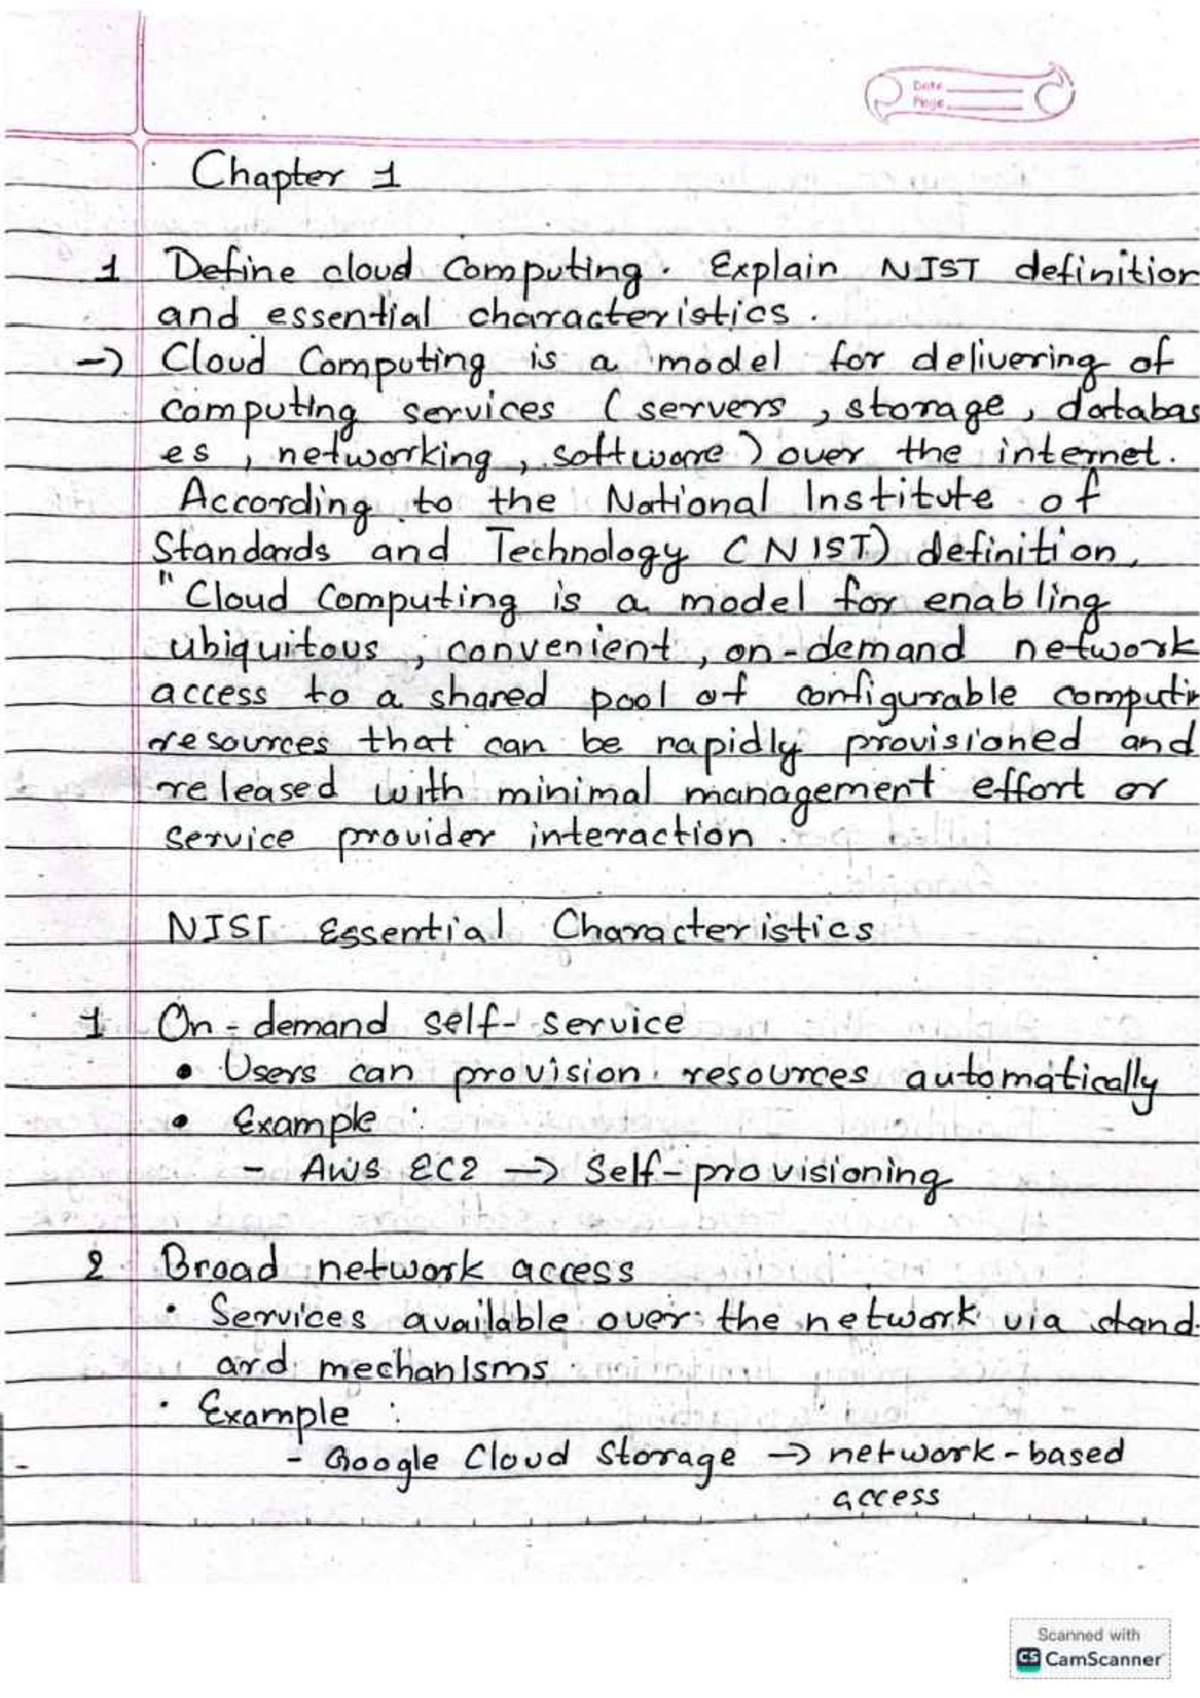 Date
Page
Chapter 1
1 Define cloud computing. Explain NIST definition
and essential characteristics.
-> Cloud Computing is a model for delivering of
computing services (servers, storage, databas
es, networking, software) over the internet.
According to the National Institute of
Standards and Technology (NIST) definition,
"Cloud Computing is a model for enabling
ubiquitous, convenient, on-demand network
access to a shared pool of configurable computin
resources that can be rapidly provisioned and
released with minimal management effort or
service provider interaction.
NIST Essential Characteristics
1 On-demand self-service
• Users can provision resources automatically
• Example :
- AWS EC2 -> Self-provisioning
2 Broad network access
• Services available over the network via stand-
ard mechanisms.
• Example :
- Google Cloud Storage -> network-based
access
Scanned with
CS CamScanner